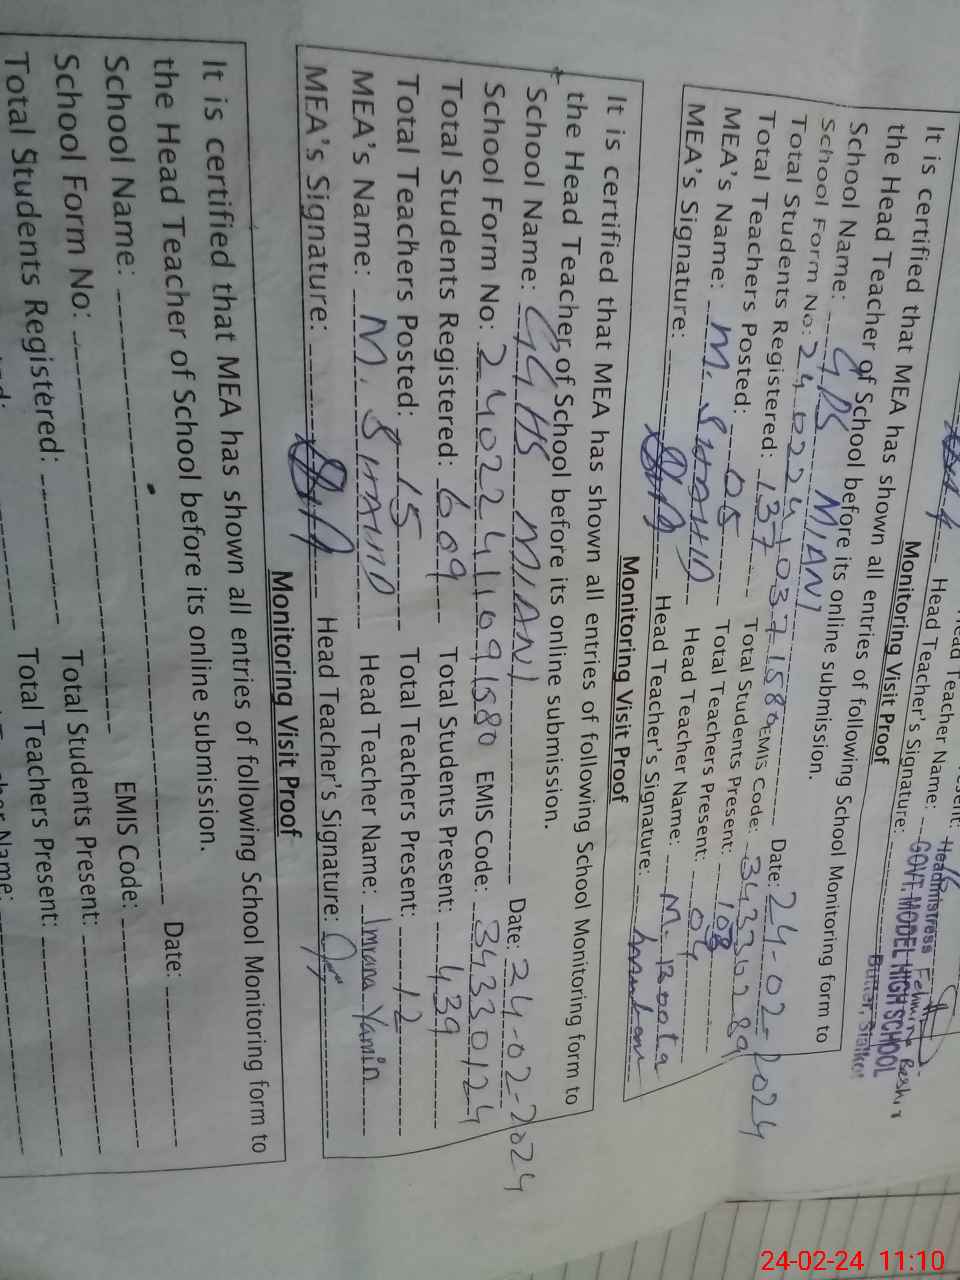 Head Teacher Name:
Head Teacher's Signature:
Headmistress
GOVT. MODEL HIGH SCHOOL
Monitoring Visit Proof
It is certified that MEA has shown all entries of following School Monitoring form to
the Head Teacher of School before its online submission.
School Name: GPS MIANI Date: 24-02-2024
School Form No: EMIS Code: 34330289
Total Students Registered: 137 Total Students Present: 108
Total Teachers Posted: 05 Total Teachers Present: 04
MEA's Name: M. SHAHID Head Teacher Name: M.
MEA's Signature: Head Teacher's Signature:
Monitoring Visit Proof
It is certified that MEA has shown all entries of following School Monitoring form to
the Head Teacher of School before its online submission.
School Name: GGHS MIANI Date: 24-02-2024
School Form No: 24022411091580 EMIS Code: 34330124
Total Students Registered: 609 Total Students Present: 439
Total Teachers Posted: 15 Total Teachers Present: 12
MEA's Name: M. SHAHID Head Teacher Name: Imrana Yamin
MEA's Signature: Head Teacher's Signature:
Monitoring Visit Proof
It is certified that MEA has shown all entries of following School Monitoring form to
the Head Teacher of School before its online submission.
School Name: Date:
School Form No: EMIS Code:
Total Students Registered: Total Students Present:
Total Teachers Present:
24-02-24 11:10